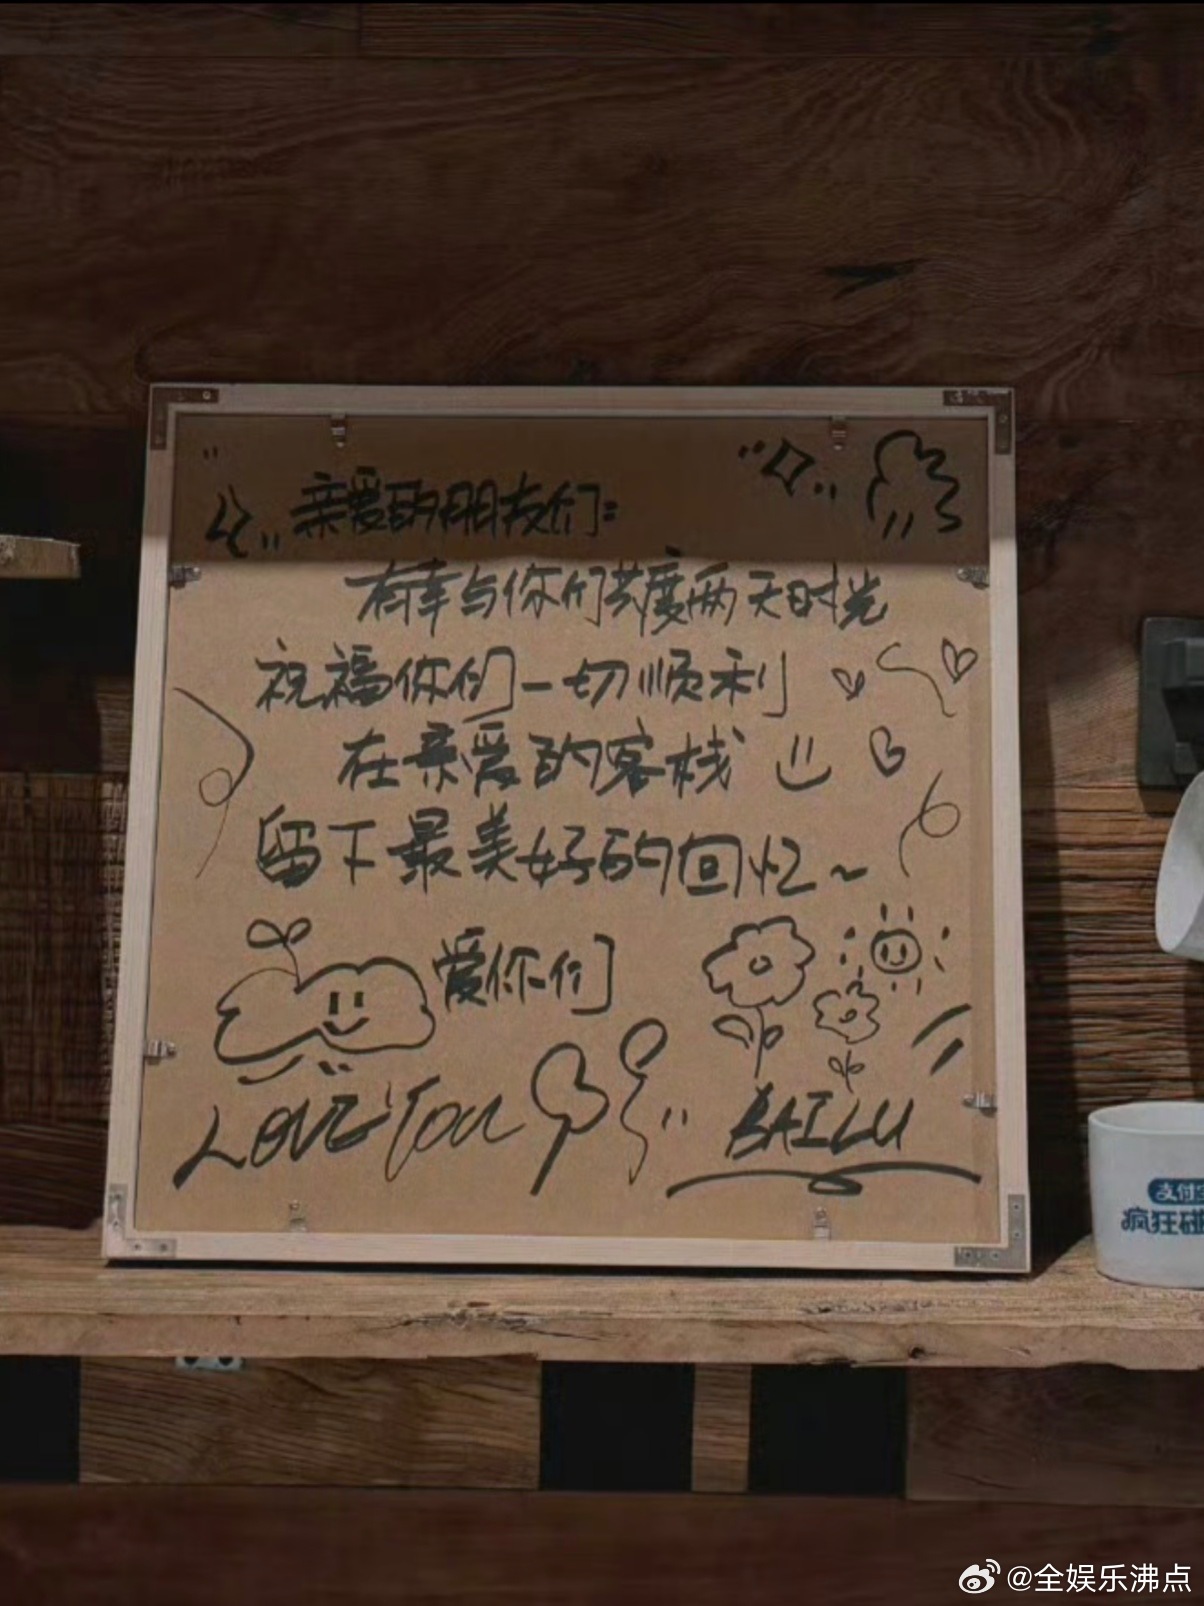 亲爱的朋友们：
有幸与你们共度两天时光
祝福你们一切顺利
在亲爱的客栈
留下最美好的回忆~
爱你们
LOVE You
BAILU
支付
疯狂碰
@全娱乐沸点